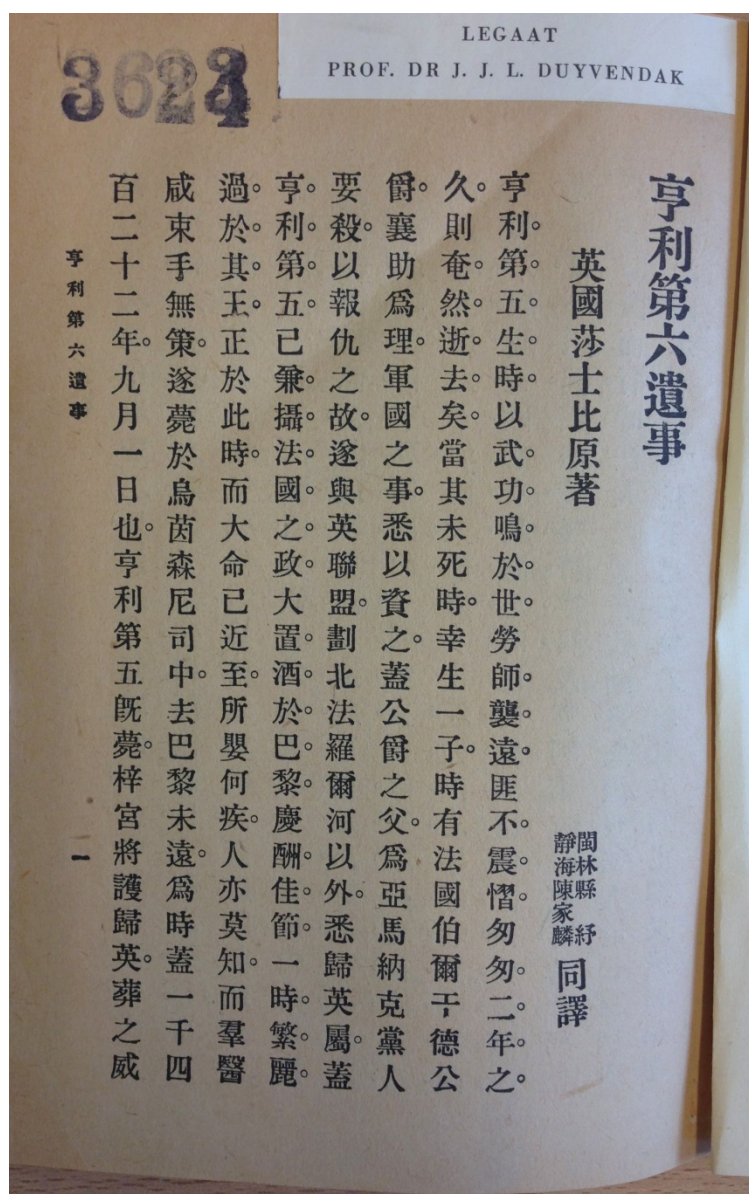 3623
LEGAAT
PROF. DR J. J. L. DUYVENDAK
亨利第六遺事
英國莎士比原著
閩林縣 紓
靜海陳家麟
同譯
亨利第五生時。以武功鳴於世。勞師襲遠。匪不震慴。匆匆二年之
久。則奄然逝去矣。當其未死時。幸生一子。時有法國伯爾干德公
爵。襄助爲理。軍國之事。悉以資之。蓋公爵之父。爲亞馬納克黨人
要殺。以報仇之故。遂與英聯盟。劃北法羅爾河以外。悉歸英屬。蓋
亨利第五已兼攝法國之政。大置酒於巴黎。慶酬佳節。一時繁麗。
過於其王。正於此時。而大命已近。至所嬰何疾。人亦莫知。而羣醫
咸束手無策。遂薨於烏茵森尼司中。去巴黎未遠。爲時蓋一千四
百二十二年。九月一日也。亨利第五旣薨。梓宮將護歸英。葬之威
亨利第六遺事
一